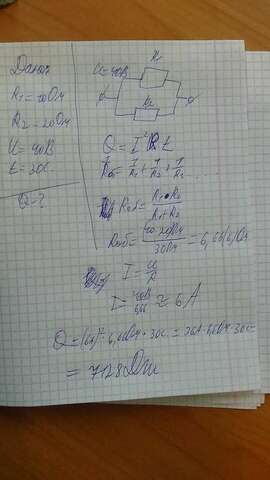 Дано:
R₁ = 10Ом
R₂ = 20Ом
U = 40В
t = 30с.
Q-?
U=40В
R₁
R₂
Q = I²Rt
1/Rоб = 1/R₁ + 1/R₂ + 1/R₂
Rоб = R₁•R₂/R₁+R₂
Rоб = 10·20Ом/30Ом = 6,66(6)Ом
I = U/R
I = 40В/6,66 ≈ 6А
Q = (6А)²·6,66Ом·30с. = 36А·6,6Ом·30с=
= 7128Дж